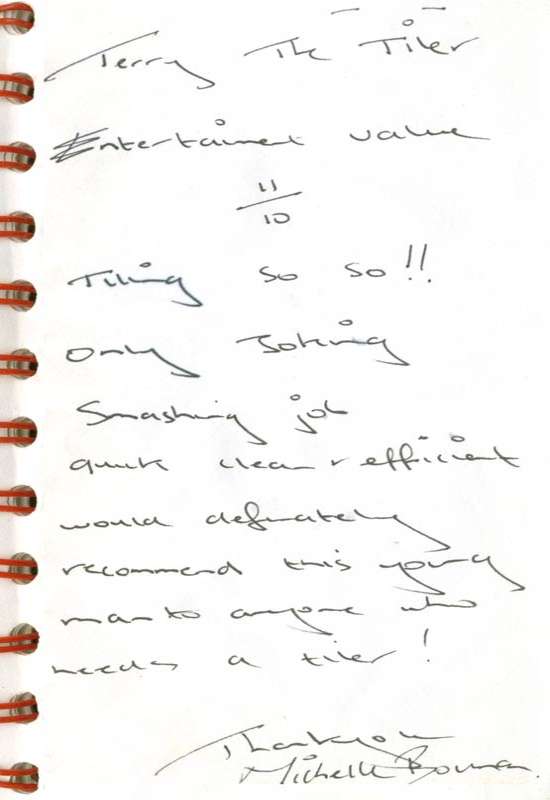 Terry The Tiler
Entertainment value
11/10
Tiling so so!!
Only Joking
Smashing job
quick clean & efficient
would definately
recommend this young
man to anyone who
needs a tiler!
Thankyou
Michelle